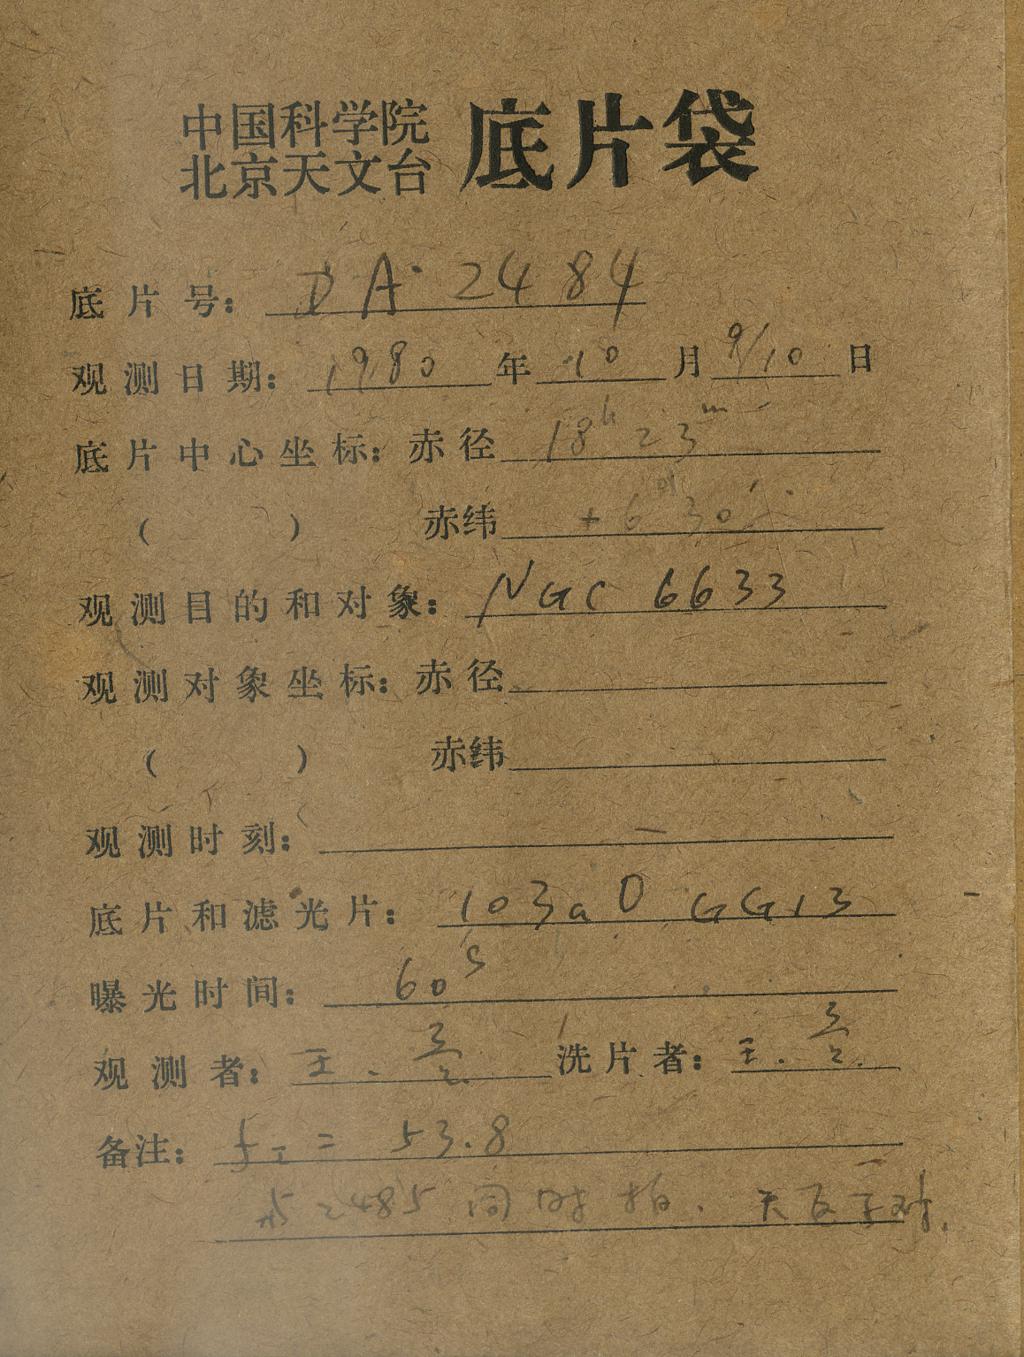 中国科学院
北京天文台
底片袋
底片号: DA 2484
观测日期: 1980 年 10 月 9/10 日
底片中心坐标: 赤径 18h 23m
( ) 赤纬 + 6° 30′
观测目的和对象: NGC 6633
观测对象坐标: 赤径
( ) 赤纬
观测时刻:
底片和滤光片: 103aO GG13
曝光时间: 60s
观测者: 王. 洗片者: 王.
备注: = 53.8
与2485同时拍.